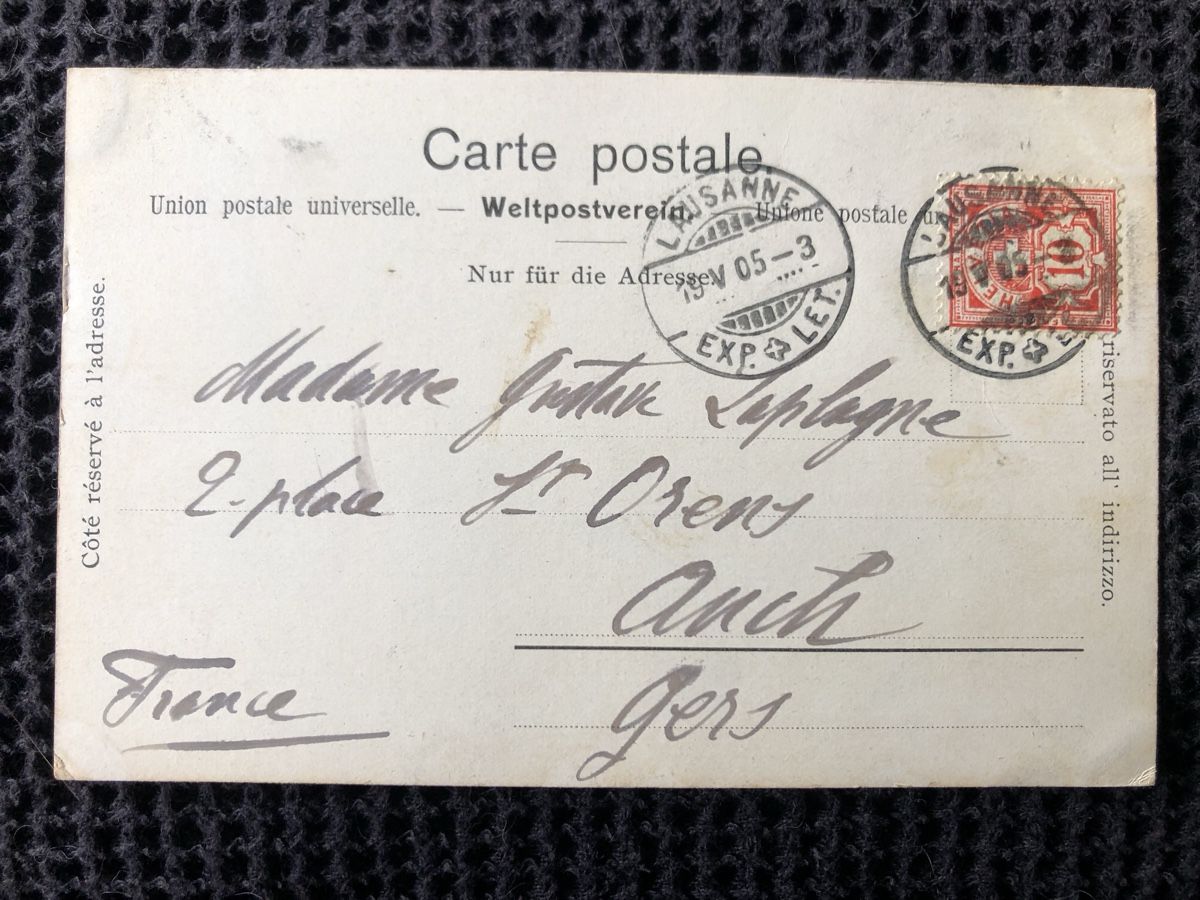 Carte postale.
Union postale universelle. — Weltpostverein. Unione postale un
Nur für die Adresse.
Côté réservé à l'adresse.
riservato all' indirizzo.
LAUSANNE
19 V 05 – 3
EXP. LET.
LAUSANNE
19 V 05
EXP.
10
HE
Madame Gustave Laplagne
2 - place St Orens
Auch
Gers
France